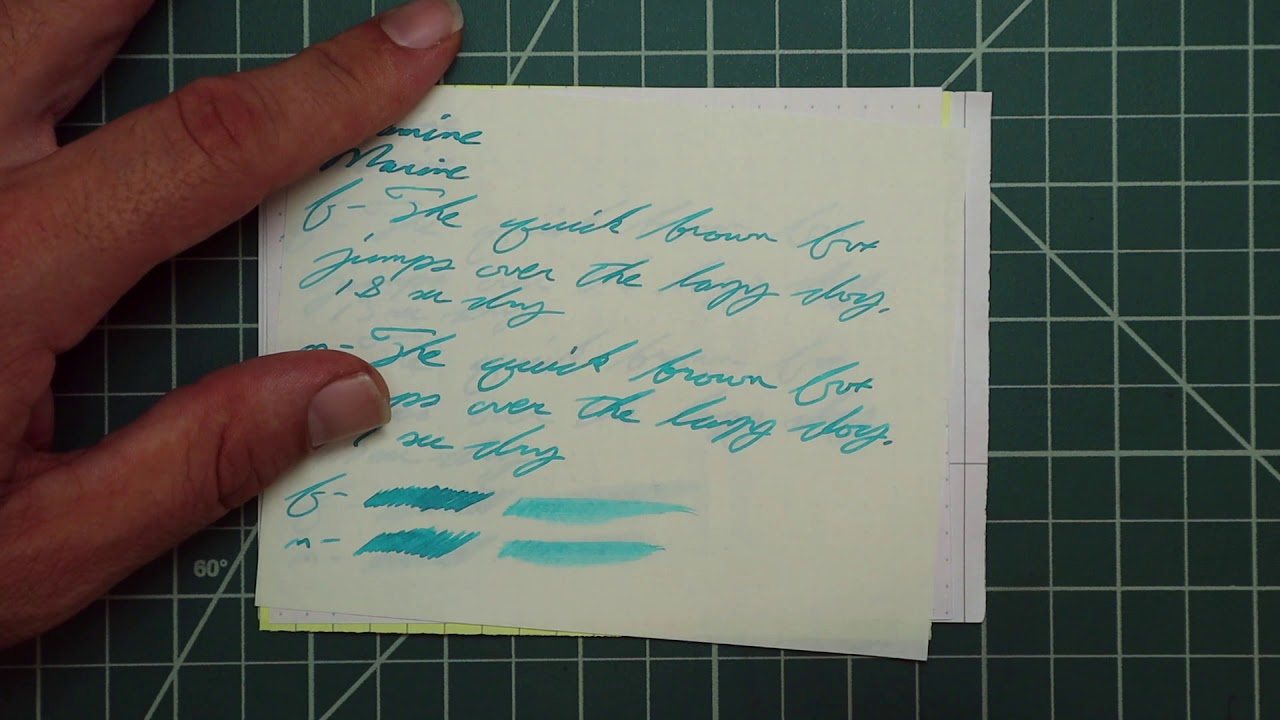 Marine
f- The quick brown fox
jumps over the lazy dog.
18 sec dry
m- The quick brown fox
over the lazy dog.
sec dry
f-
m-
60°